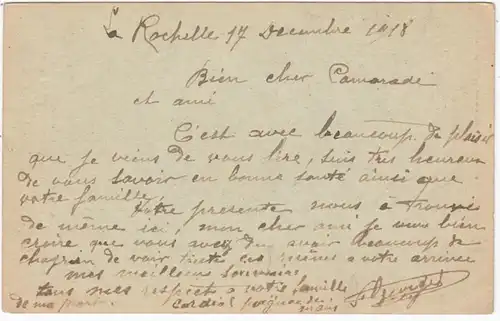 La Rochelle 17 Decembre 1918
Bien cher Camarade
et ami
C'est avec beaucoup de plaisir
que je viens de vous lire, suis tres heureux
de vous savoir en bonne santé ainsi que
votre famille.
Votre presente nous a trouvés
de même ici, mon cher ami je veux bien
croire que vous avez du avoir beaucoup de
chagrin de voir toutes ces à votre arrivée
mes meilleurs souvenirs
tous mes respects a votre famille
de ma part. Cordial poignée de
mains